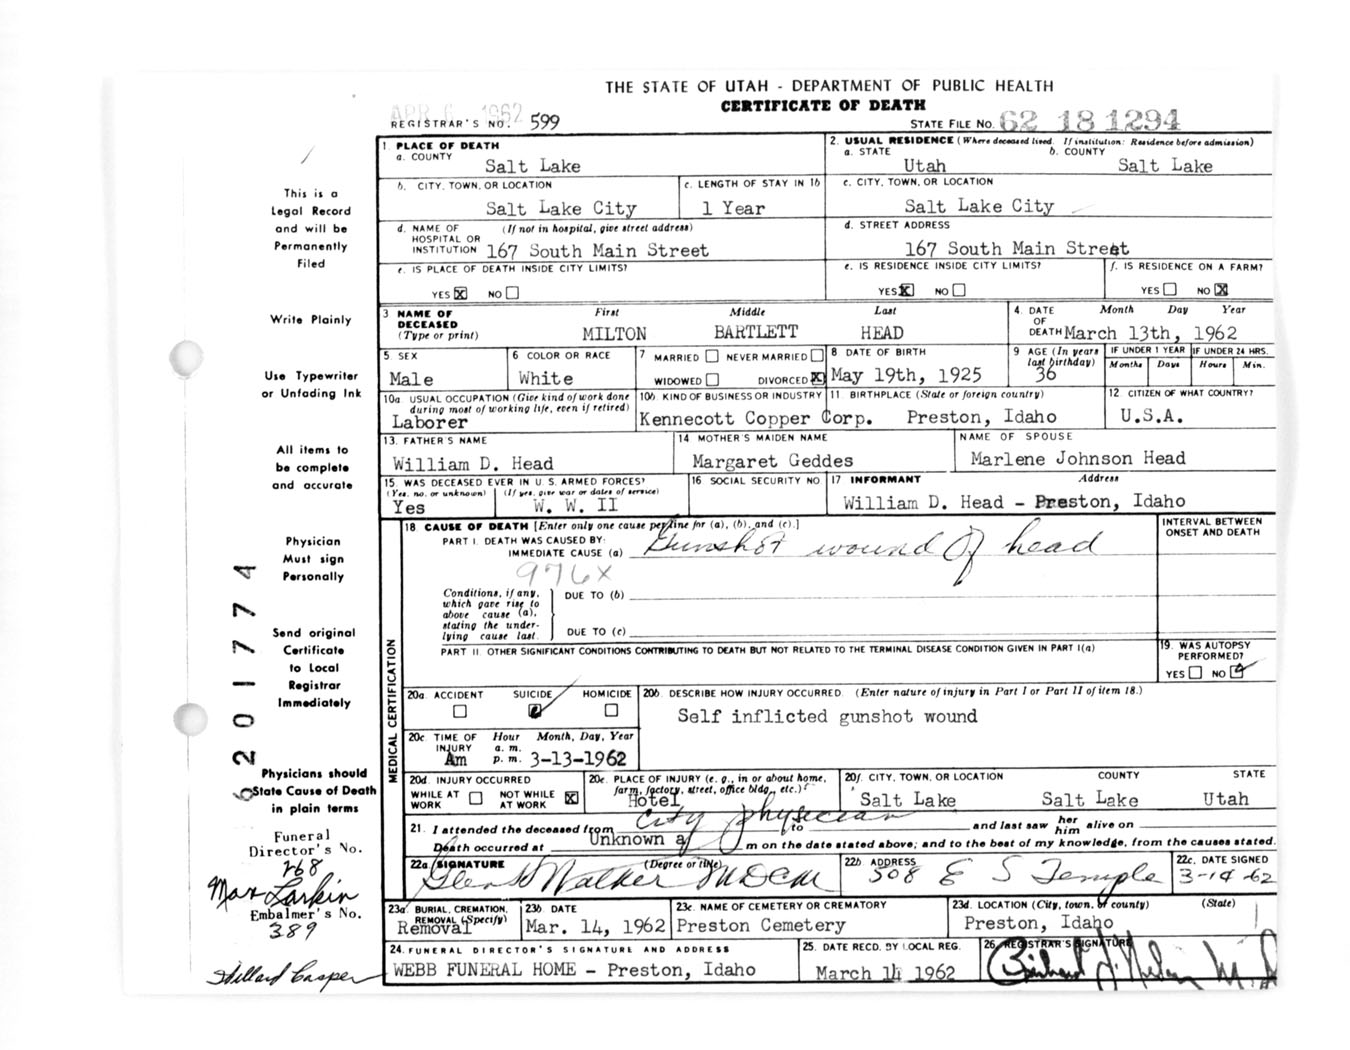 THE STATE OF UTAH - DEPARTMENT OF PUBLIC HEALTH
CERTIFICATE OF DEATH
APR 6 1962
REGISTRAR'S NO. 599
STATE FILE NO. 62 18 1294
1. PLACE OF DEATH
a. COUNTY Salt Lake
2. USUAL RESIDENCE (Where deceased lived. If institution: Residence before admission)
a. STATE Utah b. COUNTY Salt Lake
b. CITY, TOWN, OR LOCATION Salt Lake City
c. LENGTH OF STAY IN 1b 1 Year
c. CITY, TOWN, OR LOCATION Salt Lake City
d. NAME OF HOSPITAL OR INSTITUTION (If not in hospital, give street address) 167 South Main Street
d. STREET ADDRESS 167 South Main Street
e. IS PLACE OF DEATH INSIDE CITY LIMITS? YES X NO
e. IS RESIDENCE INSIDE CITY LIMITS? YES X NO
f. IS RESIDENCE ON A FARM? YES NO X
3 NAME OF DECEASED (Type or print) First MILTON Middle BARTLETT Last HEAD
4. DATE OF DEATH Month Day Year March 13th, 1962
5. SEX Male
6 COLOR OR RACE White
7 MARRIED NEVER MARRIED WIDOWED DIVORCED X
8 DATE OF BIRTH May 19th, 1925
9 AGE (In years last birthday) 36
IF UNDER 1 YEAR Months Days
IF UNDER 24 HRS. Hours Min.
10a. USUAL OCCUPATION (Give kind of work done during most of working life, even if retired) Laborer
10b. KIND OF BUSINESS OR INDUSTRY Kennecott Copper Corp.
11. BIRTHPLACE (State or foreign country) Preston, Idaho
12. CITIZEN OF WHAT COUNTRY? U.S.A.
13. FATHER'S NAME William D. Head
14 MOTHER'S MAIDEN NAME Margaret Geddes
NAME OF SPOUSE Marlene Johnson Head
15 WAS DECEASED EVER IN U.S. ARMED FORCES? (Yes, no, or unknown) Yes (If yes, give war or dates of service) W. W. II
16 SOCIAL SECURITY NO.
17 INFORMANT Address William D. Head - Preston, Idaho
18. CAUSE OF DEATH [Enter only one cause per line for (a), (b), and (c).]
INTERVAL BETWEEN ONSET AND DEATH
PART I. DEATH WAS CAUSED BY:
IMMEDIATE CAUSE (a) Gunshot wound of head
976X
Conditions, if any, which gave rise to above cause (a), stating the underlying cause last.
DUE TO (b)
DUE TO (c)
PART II. OTHER SIGNIFICANT CONDITIONS CONTRIBUTING TO DEATH BUT NOT RELATED TO THE TERMINAL DISEASE CONDITION GIVEN IN PART I(a)
19. WAS AUTOPSY PERFORMED? YES NO
MEDICAL CERTIFICATION
20a. ACCIDENT SUICIDE HOMICIDE
20b. DESCRIBE HOW INJURY OCCURRED. (Enter nature of injury in Part I or Part II of item 18.)
Self inflicted gunshot wound
20c. TIME OF INJURY Hour Month, Day, Year
a. m. p. m. Am 3-13-1962
20d. INJURY OCCURRED WHILE AT WORK NOT WHILE AT WORK X
20e. PLACE OF INJURY (e. g., in or about home, farm, factory, street, office bldg., etc.) Hotel
20f. CITY, TOWN, OR LOCATION COUNTY STATE
Salt Lake Salt Lake Utah
City physician
21. I attended the deceased from to and last saw her him alive on
Death occurred at Unknown a m on the date stated above; and to the best of my knowledge, from the causes stated.
22a. SIGNATURE (Degree or title) Walker
22b. ADDRESS 508 E S Temple
22c. DATE SIGNED 3-14-62
23a. BURIAL, CREMATION, REMOVAL (Specify) Removal
23b. DATE Mar. 14, 1962
23c. NAME OF CEMETERY OR CREMATORY Preston Cemetery
23d. LOCATION (City, town, or county) (State) Preston, Idaho
24. FUNERAL DIRECTOR'S SIGNATURE AND ADDRESS WEBB FUNERAL HOME - Preston, Idaho
25. DATE RECD. BY LOCAL REG. March 14 1962
26. REGISTRAR'S SIGNATURE
This is a
Legal Record
and will be
Permanently
Filed
Write Plainly
Use Typewriter
or Unfading Ink
All items to
be complete
and accurate
Physician
Must sign
Personally
Send original
Certificate
to Local
Registrar
Immediately
Physicians should
State Cause of Death
in plain terms
Funeral
Director's No.
268
Max Larkin
Embalmer's No.
389
Willard Casper
6201774